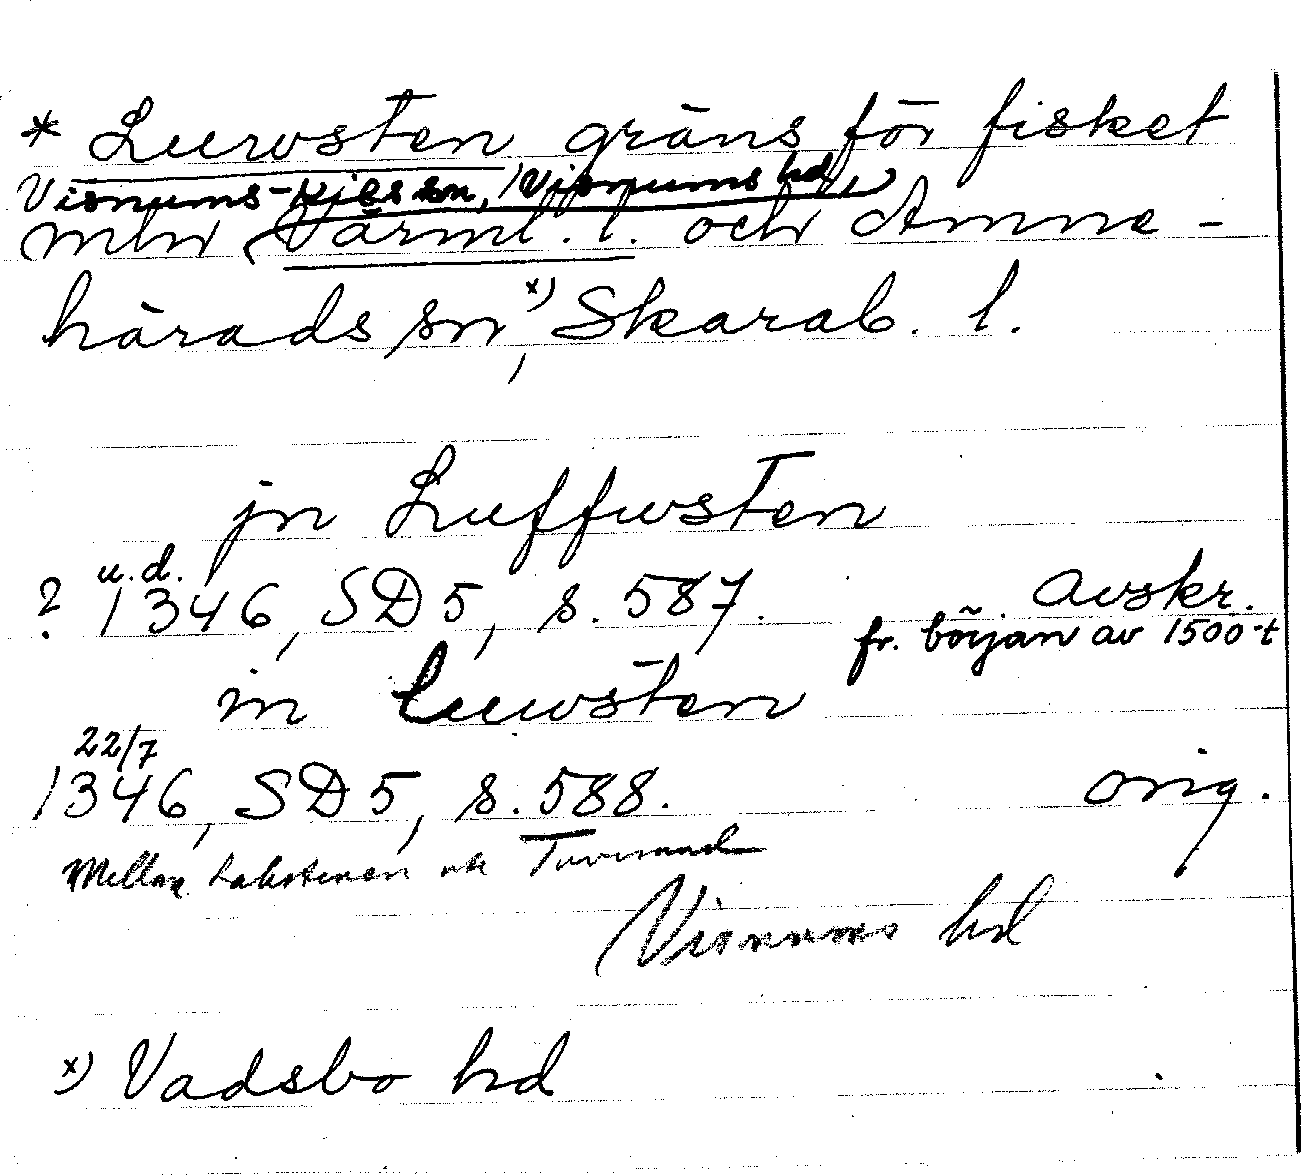 * Luwsten gräns för fisket
Visnums-Kils sn, Visnums hd,
mln Värml. l. och Amne-
härads sn, x) Skarab. l.
jn Luffwsten
u.d.
? 1346, SD 5, s. 587. Avskr.
fr. början av 1500-t
in Luwsten
22/7
1346, SD 5, s. 588. orig.
Mellan och
Visnums hd
x) Vadsbo hd